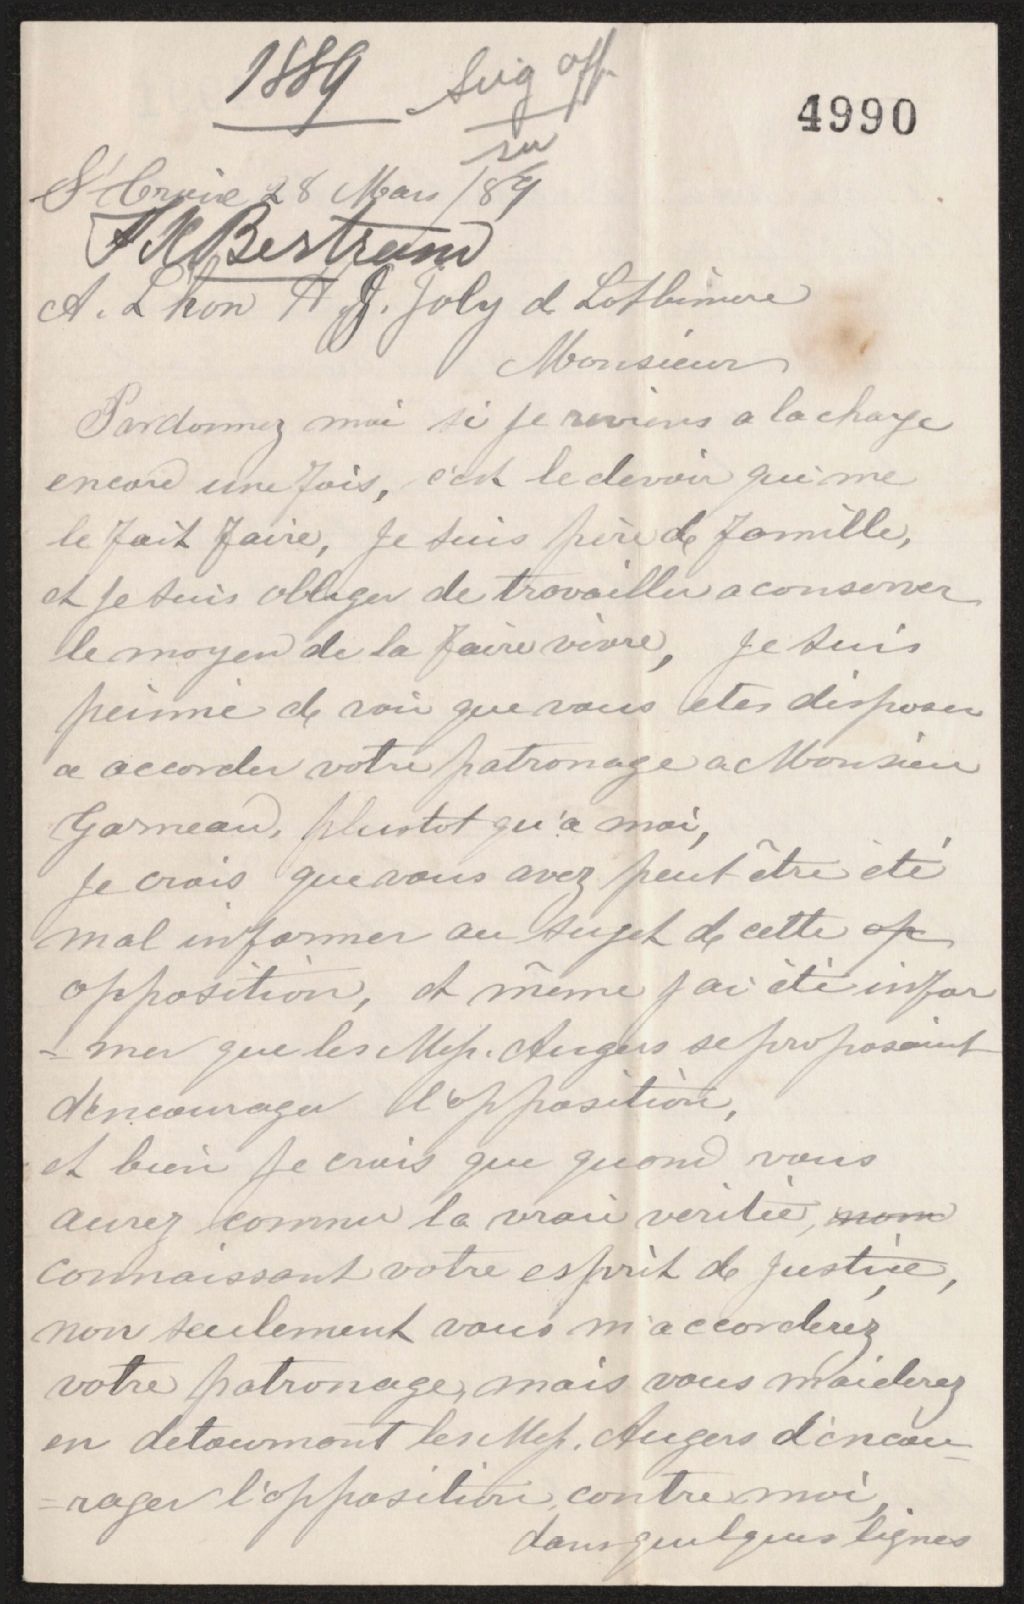 1889
Seig off.
4990
su
Ste Croix 28 Mars /89
F X Bertrand
A. L'hon H G. Joly de Lotbiniere
Monsieur
Pardonnez moi si je reviens a la charge
encore une fois, c'est le devoir qui me
le fait faire, je suis père de famille,
et je suis obliger de travailler a conserver
le moyen de la faire vivre, je suis
peinné de voir que vous etes disposer
a accorder votre patronage a Monsieur
Garneau, plustot qu'a moi,
je crois que vous avez peut être été
mal informer au sujet de cette op
opposition, et même j'ai été infor
-mer que les Mess. Angers se proposaient
d'encourager l'opposition,
et bien je crois que quand vous
aurez connu la vraie véritée, nom
connaissant votre esprit de justice,
non seulement vous m'accorderez
votre patronage, mais vous m'aiderez
en detournant les Mess. Angers d'encou=
=rager l'opposition contre moi,
dans quelques lignes